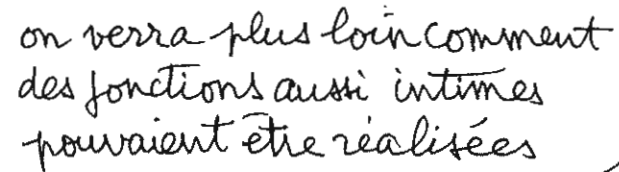 on verra plus loin comment
des fonctions aussi intimes
pouvaient être réalisées